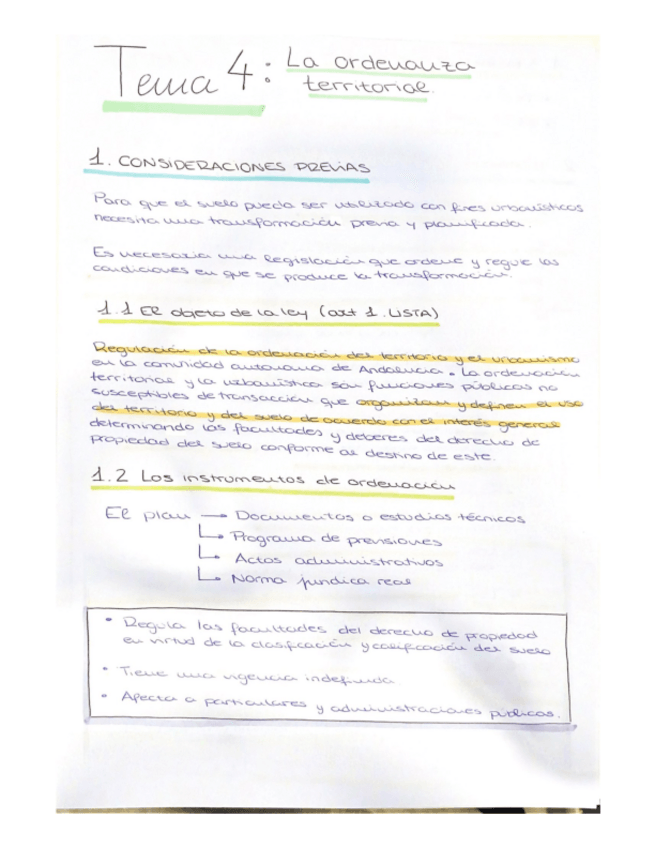 Tema 4: La ordenanza
territorial.
1. CONSIDERACIONES PREVIAS
Para que el suelo pueda ser utilizado con fines urbanísticos
necesita una transformación previa y planificada.
Es necesaria una legislación que ordene y regule las
condiciones en que se produce la transformación.
1.1 El objeto de la ley (art 1. LISTA)
Regulación de la ordenación del territorio y el urbanismo
en la comunidad autonoma de Andalucia. La ordenación
territorial y la urbanística son funciones públicas no
susceptibles de transacción que organizan y definen el uso
del territorio y del suelo de acuerdo con el interés general
determinando las facultades y deberes del derecho de
propiedad del suelo conforme al destino de este.
1.2 Los instrumentos de ordenación
El plan → Documentos o estudios técnicos
↳ Programa de previsiones
↳ Actos administrativos
↳ Norma jurídica real
• Regula las facultades del derecho de propiedad
en virtud de la clasificación y calificación del suelo
• Tiene una vigencia indefinida
• Afecta a particulares y administraciones públicas.